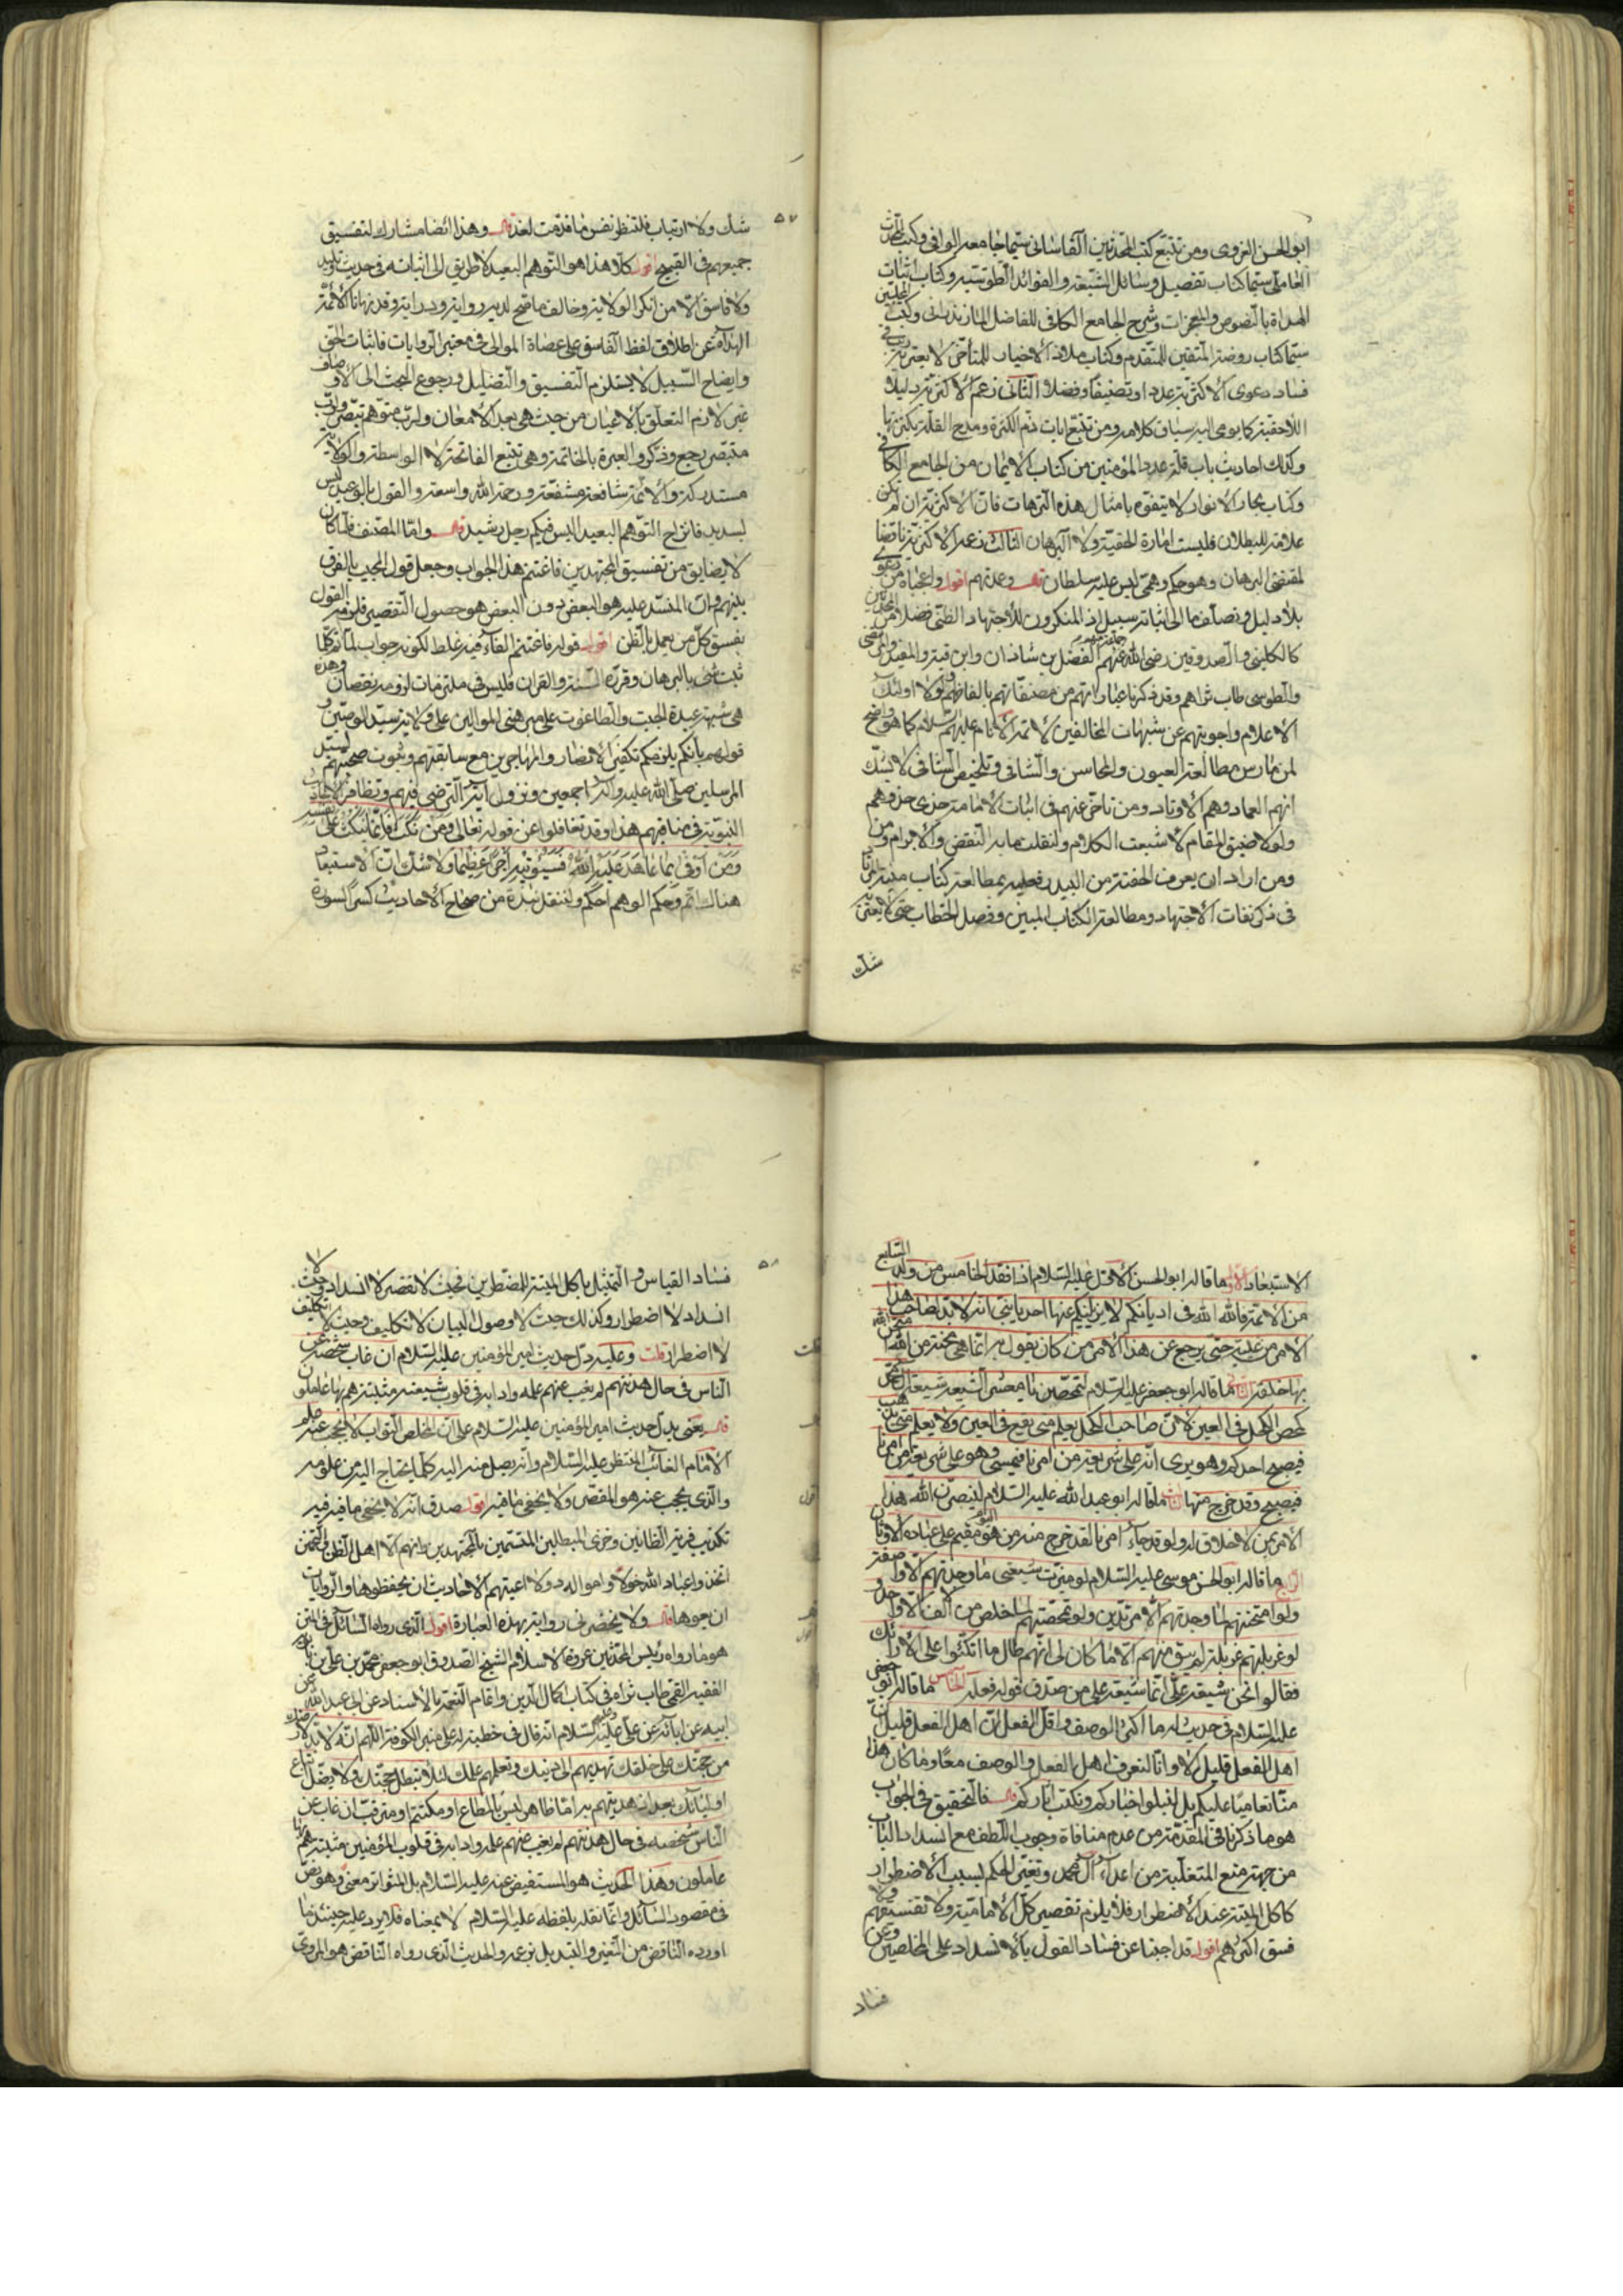 ابو الحسن الغروی ومن تتبع کتب المحدثین القاسانی سیما جامعه الوافی وکتب المحدث
العاملی سیما کتاب تفصیل وسائل الشیعة والفوائد الطوسیه وکتاب اثبات
الهداة بالنصوص والمعجزات وشرح الجامع الکافی للفاضل المازندرانی وکتب المجلسیین
سیما کتاب روضة المتقین للمتقدم وکتاب ملاذ الاخیار للمتأخر لا یعتریه ریب فی
فساد دعوی الاکثریة عددا وتصنیفا وفضلا الثانی زعم الاکثریة دلیلا
الاحقیة کما یومی الیه سیاق کلامه ومن تتبع ایات ذم الکثرة ومدح القلة بکثرتها
وکذلک احادیث باب قلة عدد المؤمنین من کتاب الایمان من الجامع الکافی
وکتاب بحار الانوار لا یتفوه بامثال هذه الترهات فان الاکثریة ان لم تکن
علامة للبطلان فلیست امارة الحقیة ولا البرهان الثالث زعم الاکثریة ناقضا
لمقتضی البرهان وهو حکم وهمی لیس علیه سلطان قال وعدتهم اقول واعجباه من دعوی
بلا دلیل وتصلف ما الی اثباته سبیل اذ المنکرون للاجتهاد الظنی فضلا من المحدثین
کالکلینی والصدوقین رضی الله عنهم الفضل بن شاذان وابن قبة والمفید والمرتضی
والطوسی طاب ثراهم وقد ذکرنا عباراتهم من مصنفاتهم بالفاظهم ولولا اولئک
الاعلام واجوبتهم عن شبهات المخالفین لائمة الانام علیهم السلام کما هو واضح
لمن مارس مطالعة العیون والمحاسن والشافی وتلخیص الشافی لا یشک
انهم العماد وهم الاوتاد ومن تاخر عنهم فی اثبات الامامة حذی حذوهم
ولولا ضیق المقام لاشبعت الکلام ولنقلت ما به النقض والابرام ومن
ومن اراد ان یعرف الحفنة من البیدر فعلیه بمطالعة کتاب منیة المرتاد
فی ذکر نفات الاجتهاد ومطالعة الکتاب المبین وفصل الخطاب حتی لا یعتریه
شک
٥٧
شک ولا ارتیاب فلتنظر نفس ما قدمت لغد قال وهذا ایضا مشارک لتفسیق
جمیعهم فی القبیح اقول کلا هذا هو التوهم البعید لا طریق الی اثباته فی حدیث
ولا فاسق الا من انکر الولایة وخالف ما صح لدیه روایة ودرایة وقد نهانا الائمة
الهداة عن اطلاق لفظ الفاسق علی عصاة الموالی فی معتبر الروایات فاثبات الحق
وایضاح السبیل لا یستلزم التفسیق والتضلیل ورجوع البحث الی الاوصاف
غیر لازم التعلق بالاعیان من حیث هی بعد الامعان ولرب متوهم تبصر ورب
متبصر رجع وذکر والعبرة بالخاتمة وهی تتبع الفاتحة لا الواسطة والولایة
مستدرکة والائمة شافعة مشفعة ورحمة الله واسعة والقول بالوعید لیس
بسدید فانزاح التوهم البعید الیس فیکم رجل رشید قال واما المصنف فلما کان
لا یضایق من تفسیق المجتهدین فاغتنم هذا الجواب وجعل قول المجیب بالفرق
بینهم وان المنسد علیه هو البعض دون البعض هو حصول التقصیر فلزمه القول
بفسق کل من یعمل بالظن اقول قوله فاغتنم القاء فیه غلط لکونه جواب لما نعم کلما
ثبت شئ بالبرهان وقرره السنة والقران فلیس فی ملتزمات لزومه نقصان وهذه
هی شبهة عبدة الجبت والطاغوت علی مبرهنی الموالین علی ولایة سید الوصیین و
قولهم بانکم یلزمکم تکفیر الانصار والمهاجرین مع سابقتهم وثبوت صحبتهم لسید
المرسلین صلی الله علیه وآله اجمعین ونزول آیة الترضی فیهم وتظافر الاخبار
النبویة فی مناقبهم هذا وقد تغافلوا عن قوله تعالی ومن نکث فانما ینکث علی نفسه
ومن اوفی بما عاهد علیه الله فسیؤتیه اجرا عظیما ولا شک ان الاستبعاد
هناک اتم وحکم الوهم احکم ولننقل نبذة من صحاح الاحادیث کسرا لسورة
الاستبعاد الاول ما قاله ابو الحسن الاول علیه السلام اذا فقد الخامس من ولد السابع
من الائمة فالله الله فی ادیانکم لا یزیلنکم عنها احد یا بنی انه لا بد لصاحب هذا
الامر من غیبة حتی یرجع عن هذا الامر من کان یقول به انما هی محنة من الله امتحن الله
بها خلقه الثانی ما قاله ابو جعفر علیه السلام لتمحصن یا معشر الشیعة شیعة آل محمد
کمحص الکحل فی العین لان صاحب الکحل یعلم متی یقع فی العین ولا یعلم متی یذهب
فیصبح احدکم وهو یری انه علی شریعة من امرنا فیمسی وهو علی شریعة من امرنا
فیصبح وقد خرج منها الثالث ما قاله ابو عبد الله علیه السلام لینصرن الله هذا
الامر بمن لا خلاق له ولو قد جاء امرنا لقد خرج منه من هو الیوم مقیم علی عبادة الاوثان
الرابع ما قاله ابو الحسن موسی علیه السلام لو میزت شیعتی ما وجدتهم الا واصفة
ولو امتحنتهم لما وجدتهم الا مرتدین ولو تمحصتهم لما خلص من الالف الا واحد و
لو غربلتهم غربلة لم یبق منهم الا ما کان لی انهم طال ما اتکئوا علی الارائک
فقالوا نحن شیعة علی انما شیعة علی من صدق قوله فعله الخامس ما قاله ابو جعفر
علیه السلام فی حدیث له ما اکثر الوصف واقل الفعل ان اهل الفعل قلیل ان
اهل الفعل قلیل الا وانا لنعرف اهل الفعل والوصف معا وما کان هذا
منا تعامیا علیکم بل لنبلوا اخبارکم ونکتب اثارکم قال فالتحقیق فی الجواب
هو ما ذکرنا فی المقدمة من عدم منافاة وجوب اللطف مع انسداد الباب
من جهة منع المتغلبة من اعداء آل محمد وتغیر الحکم بسبب الاضطرار
کاکل المیتة عند الاضطرار فلا یلزم تقصیر کل الامامیة ولا تفسیقهم ولا
فسق اکثرهم اقول قد اجبنا عن فساد القول بالانسداد علی المخلصین وعن
فساد
٥٨
فساد القیاس والتمثیل باکل المیتة للمضطرین فحیث لا تقصیر لا انسداد وحیث لا
انسداد لا اضطرار وکذلک حیث لا وصول البیان لا تکلیف وحیث لا تکلیف
لا اضطرار قلت وعلیه دل حدیث امیر المؤمنین علیه السلام ان غاب شخصه عن
الناس فی حال هدنتهم لم یغب عنهم علمه وادابه فی قلوب شیعته مثبتة هم بها عاملون
قال یعنی یدل حدیث امیر المؤمنین علیه السلام علی ان المخلص التواب لا یحجب عنه علم
الامام الغائب المنتظر علیه السلام وانه یصل منه الیه کلما یحتاج الیه من علومه
والذی یحجب عنه هو المقصر ولا یخفی ما فیه اقول صدق انه لا یخفی ما فیه فیه
تکذیب فریة الظانین وخزی المبطلین المتسمین بالمجتهدین وانهم الا اهل الظن والتخمین
اتخذوا عباد الله خولا وامواله دولا اعیتهم الاحادیث ان یحفظوها والروایات
ان یعوها قال ولا یحضرنی روایة بهذه العبارة اقول الذی رواه السائل فی المتن
هو ما رواه رئیس المحدثین عروة الاسلام الشیخ الصدوق ابو جعفر محمد بن علی بن بابویه
الفقیه القمی طاب ثراه فی کتاب اکمال الدین واتمام النعمة بالاسناد عن ابی عبد الله عن
ابیه عن ابائه عن علی علیه وعلیهم السلام انه قال فی خطبة له علی منبر الکوفة اللهم انه لا بد لارضک
من حجتک علی خلقک تهدیهم الی دینک وتعلمهم علمک لئلا تبطل حجتک ولا یضل اتباع
اولیائک بعد اذ هدیتهم به اما ظاهر لیس بالمطاع او مکتتم او مترقب ان غاب عن
الناس شخصه فی حال هدنتهم لم یغب عنهم علمه وادابه فی قلوب المؤمنین مثبتة هم بها
عاملون وهذا الحدیث هو المستفیض عنه علیه السلام بل المتواتر معنی وهو نص
فی مقصود السائل وانما نقله بلفظه علیه السلام لا بمعناه فلا یرد علیه حینئذ ما
اورده الناقض من التغییر والتبدیل بزعمه والحدیث الذی رواه الناقض هو المروی